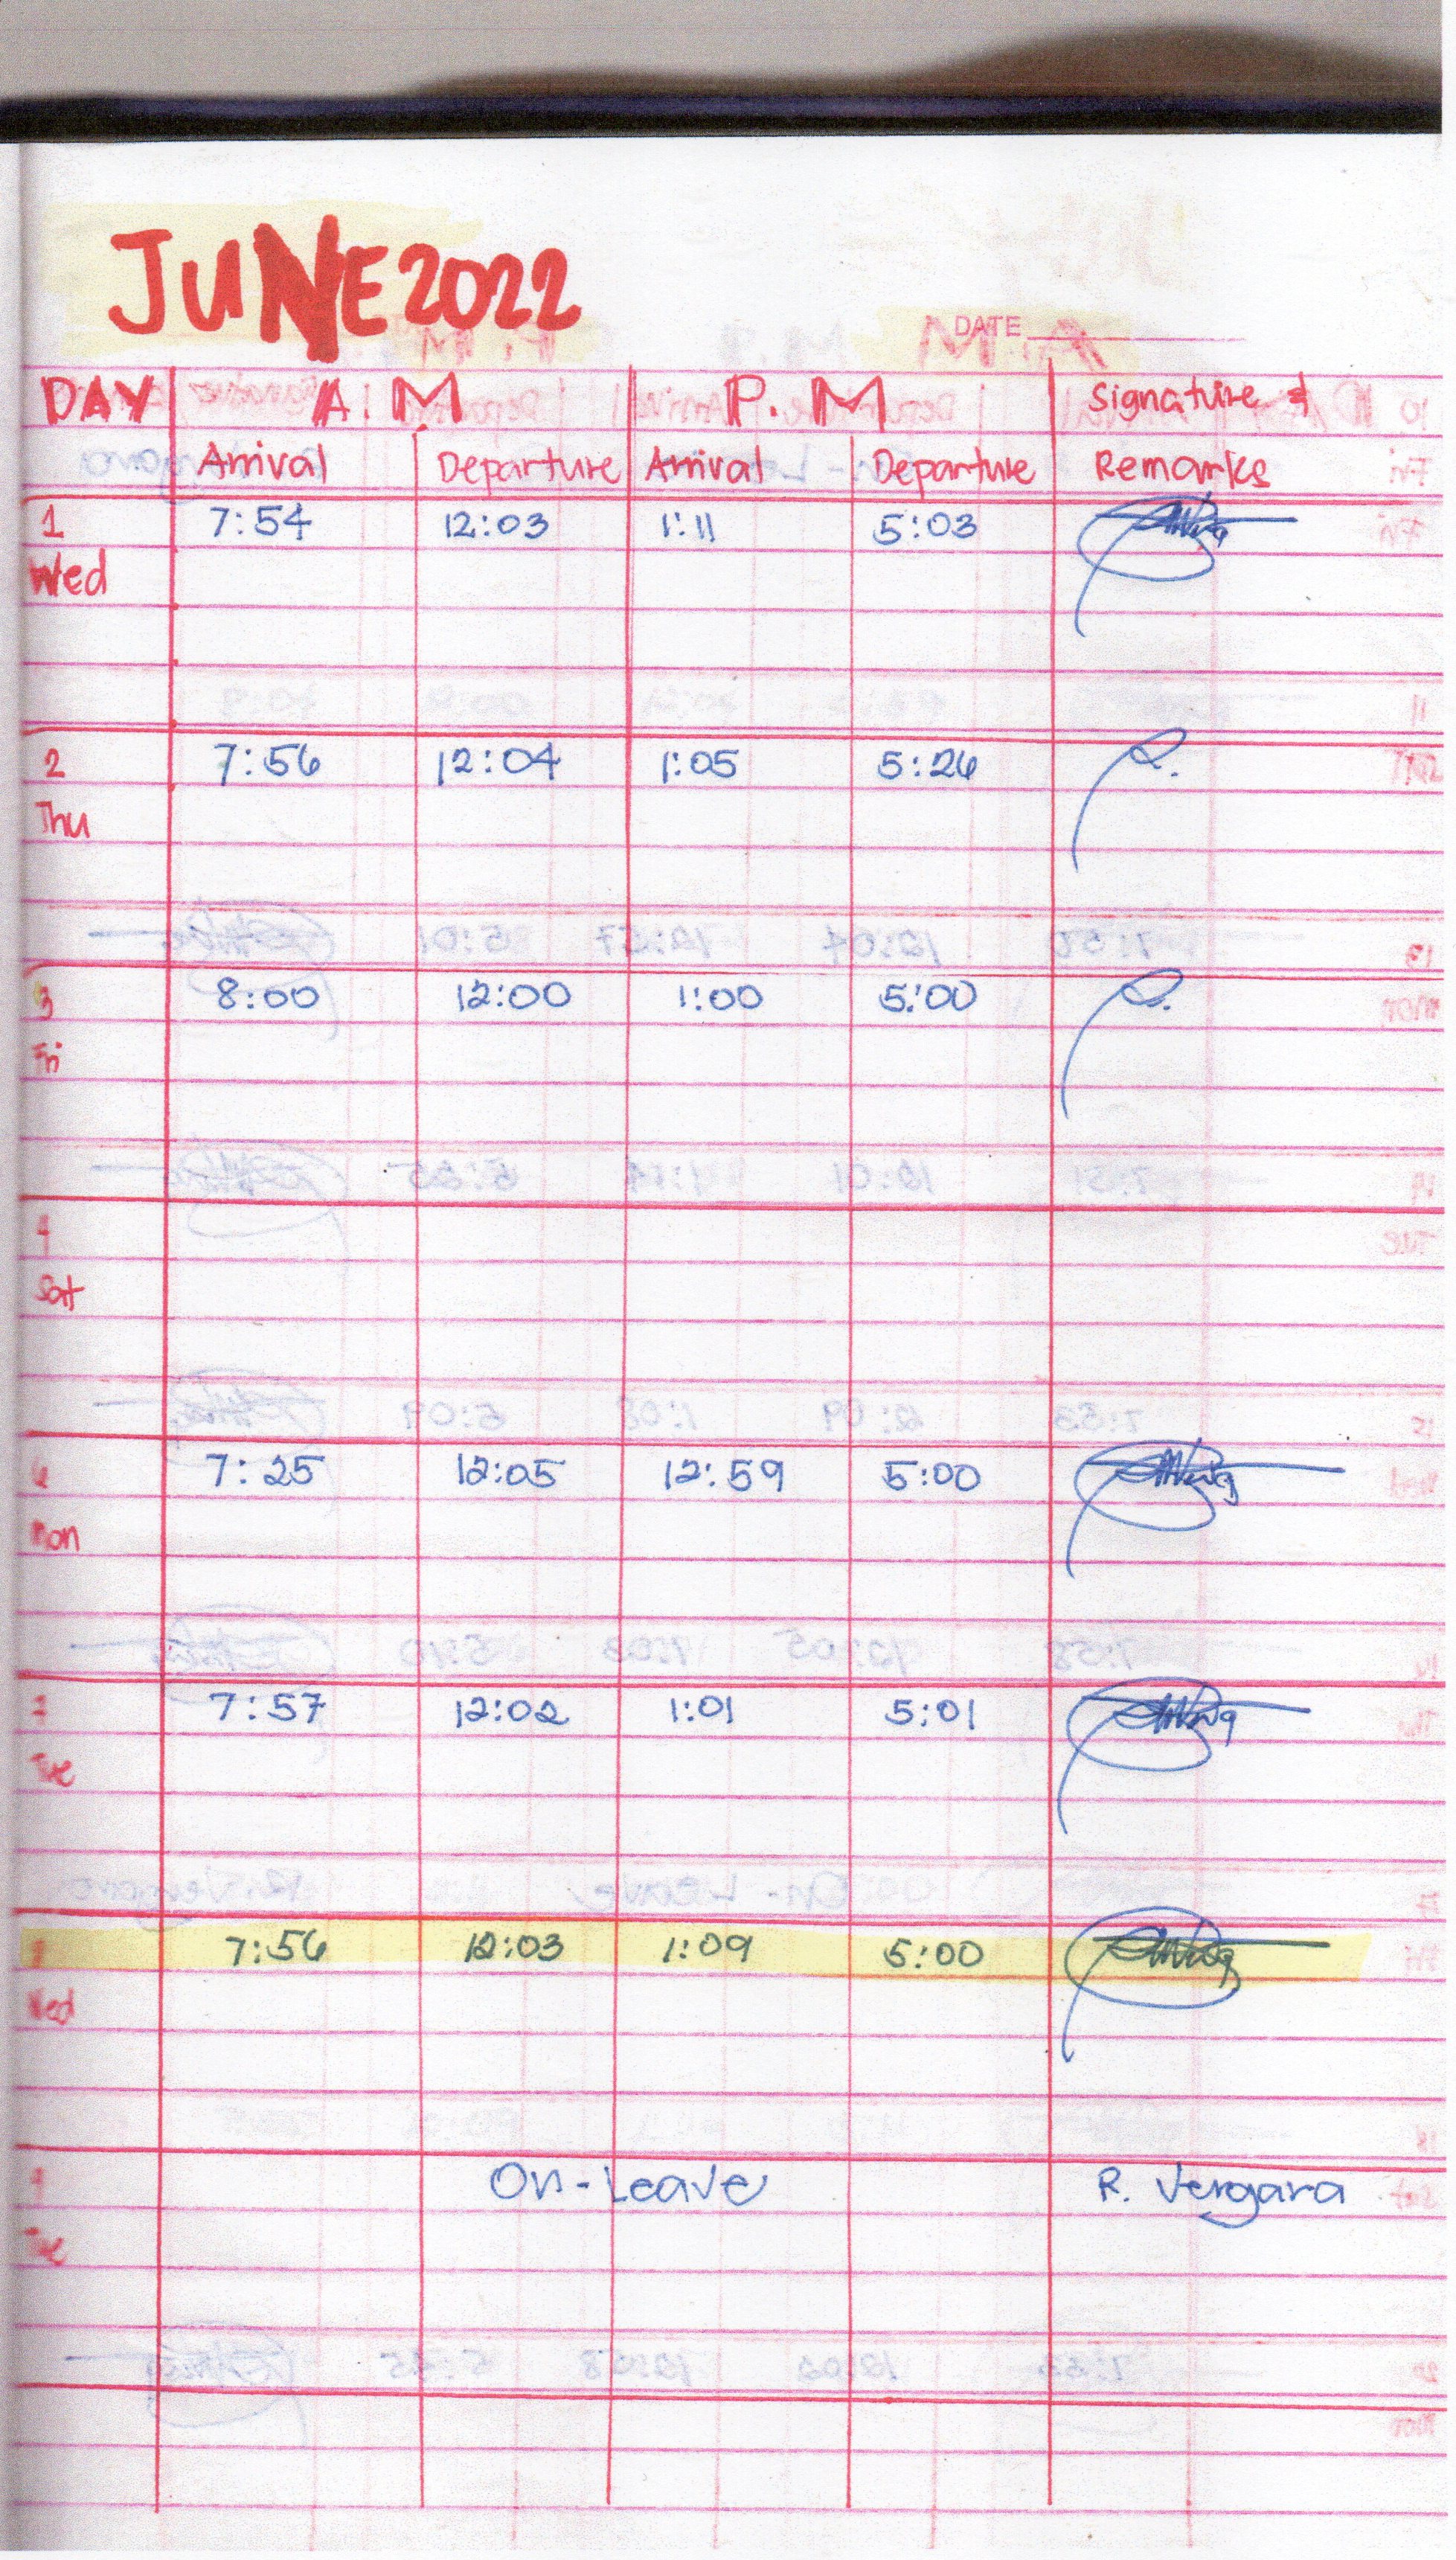 JUNE 2022
DATE
DAY A.M P.M Signature &
Arrival Departure Arrival Departure Remarks
1 7:54 12:03 1:11 5:03
Wed
2 7:56 12:04 1:05 5:26
Thu
3 8:00 12:00 1:00 5:00
Fri
4
Sat
6 7:25 12:05 12:59 5:00
Mon
7:57 12:02 1:01 5:01
Tue
7:56 12:03 1:09 5:00
Wed
9 On-Leave R. Vergara